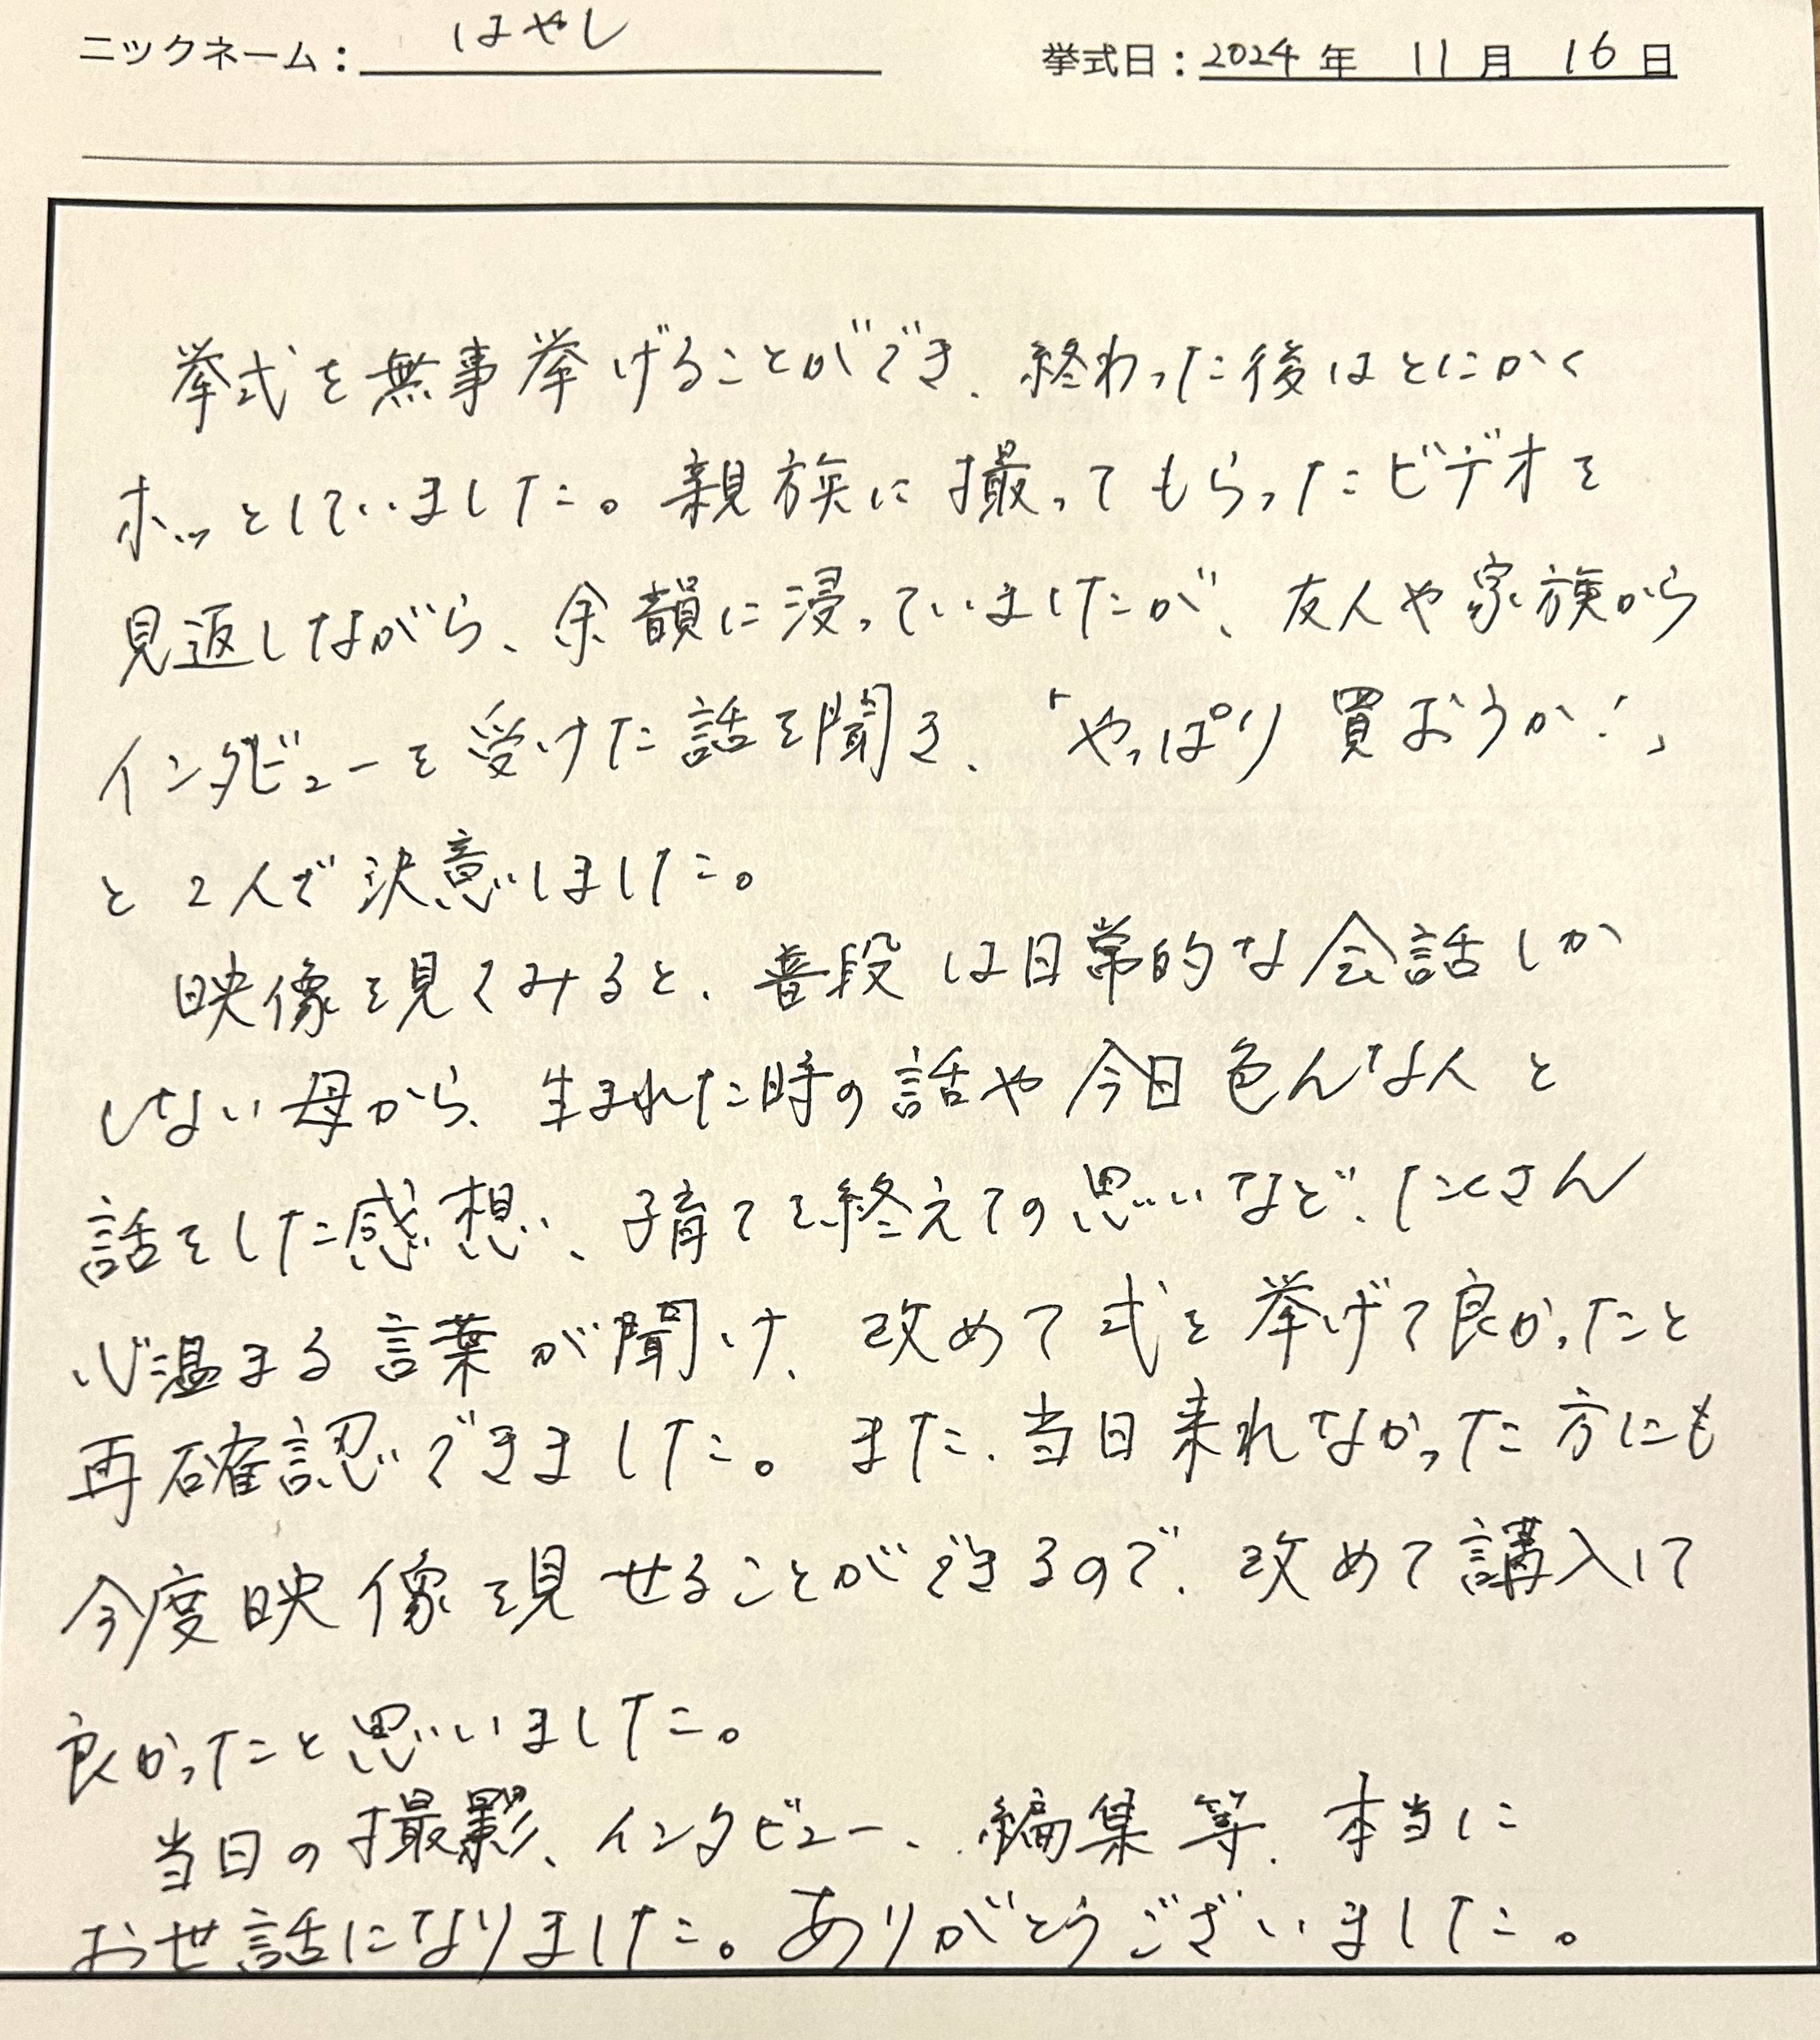 ニックネーム： はやし 挙式日：2024 年 11 月 16 日
挙式を無事挙げることができ、終わった後はとにかく
ホッとしていました。親族に撮ってもらったビデオを
見返しながら、余韻に浸っていましたが、友人や家族から
インタビューを受けた話を聞き、「やっぱり買おうか！」
と2人で決意しました。
映像を見てみると、普段は日常的な会話しか
しない母から、生まれた時の話や今日色んな人と
話をした感想、子育てを終えての思いなど、たくさん
心温まる言葉が聞け、改めて式を挙げて良かったと
再確認できました。また、当日来れなかった方にも
今度映像を見せることができるので、改めて講入して
良かったと思いました。
当日の撮影、インタビュー、編集等、本当に
お世話になりました。ありがとうございました。